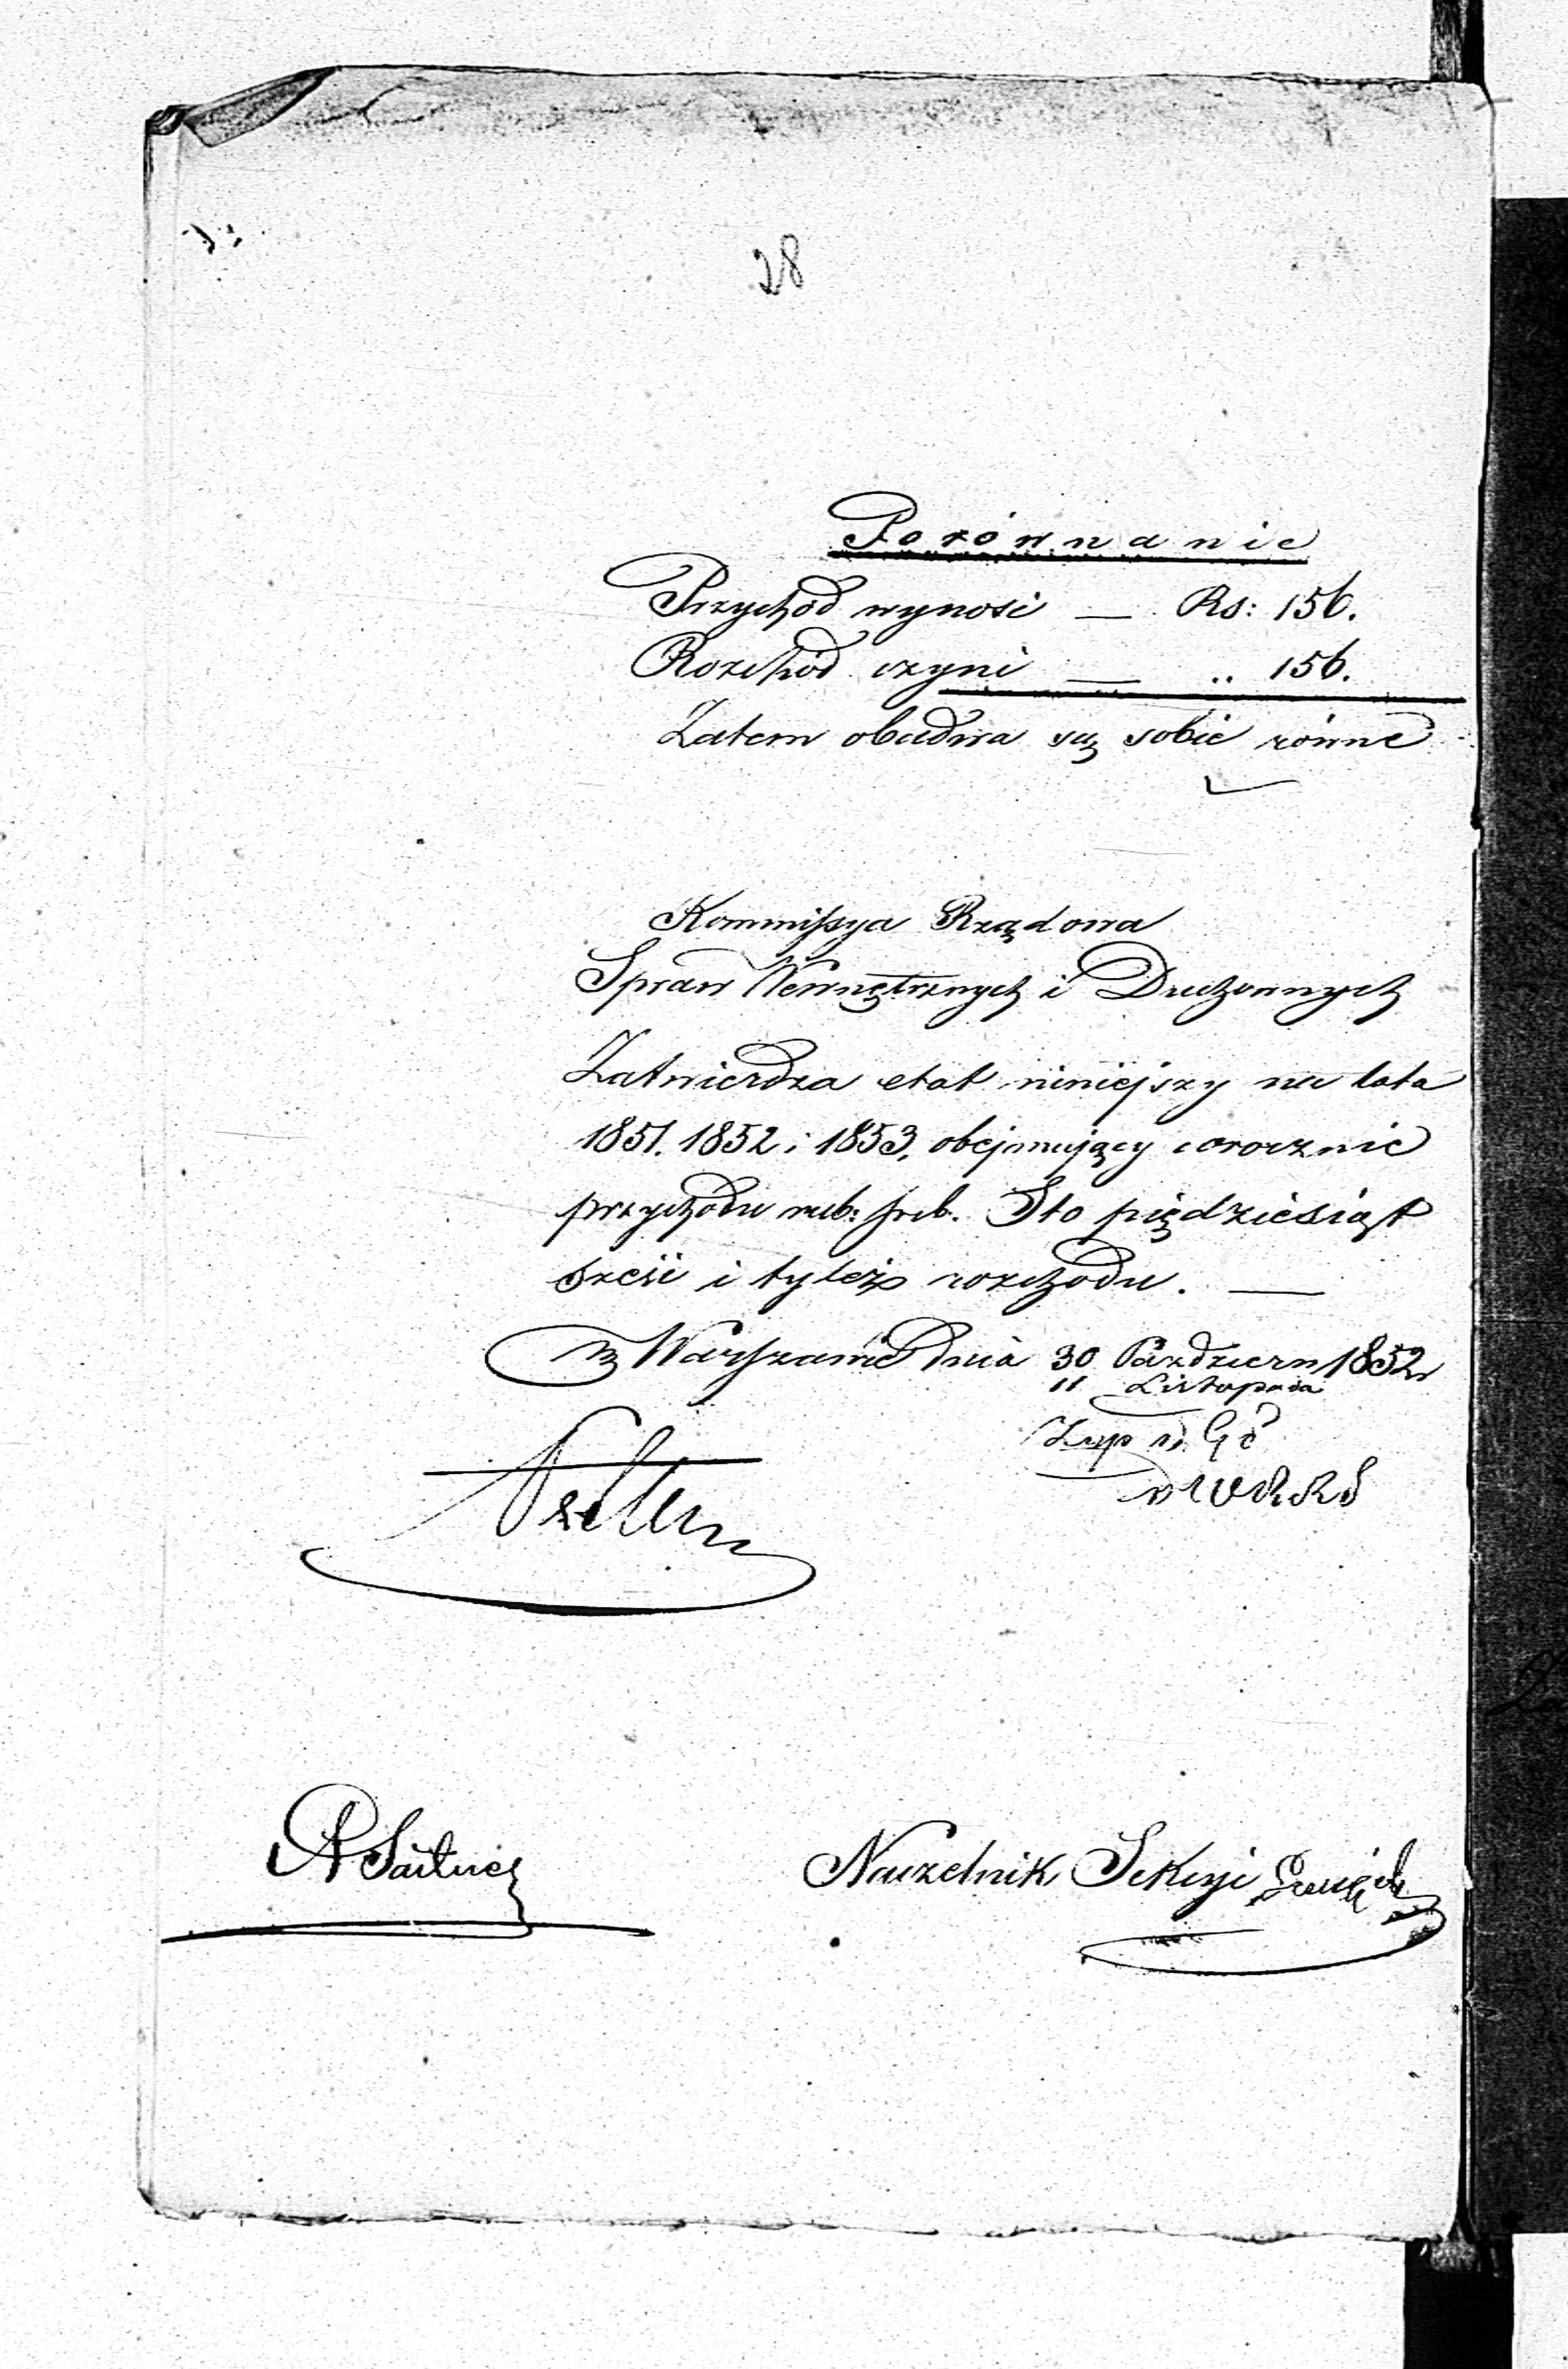 28
Porównanie
Przychód wynosi — Rs: 156.
Rozchód czyni — „ 156.
Zatem obadwa są sobie równe
Kommissya Rządowa
Spraw Wewnętrznych i Duchownych
Zatwierdza etat niniejszy na lata
1851. 1852 i 1853. obejmujący corocznie
przychodu rub: sreb. Sto pięćdziesiąt
sześć i tyleż rozchodu. —
w Warszawie dnia 30 Paździer 1852
11 Listopada
Naczelnik Sekcyi